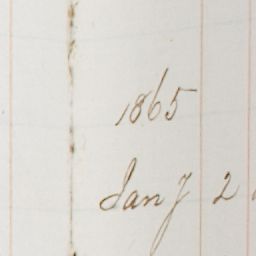 1865
Jany 2